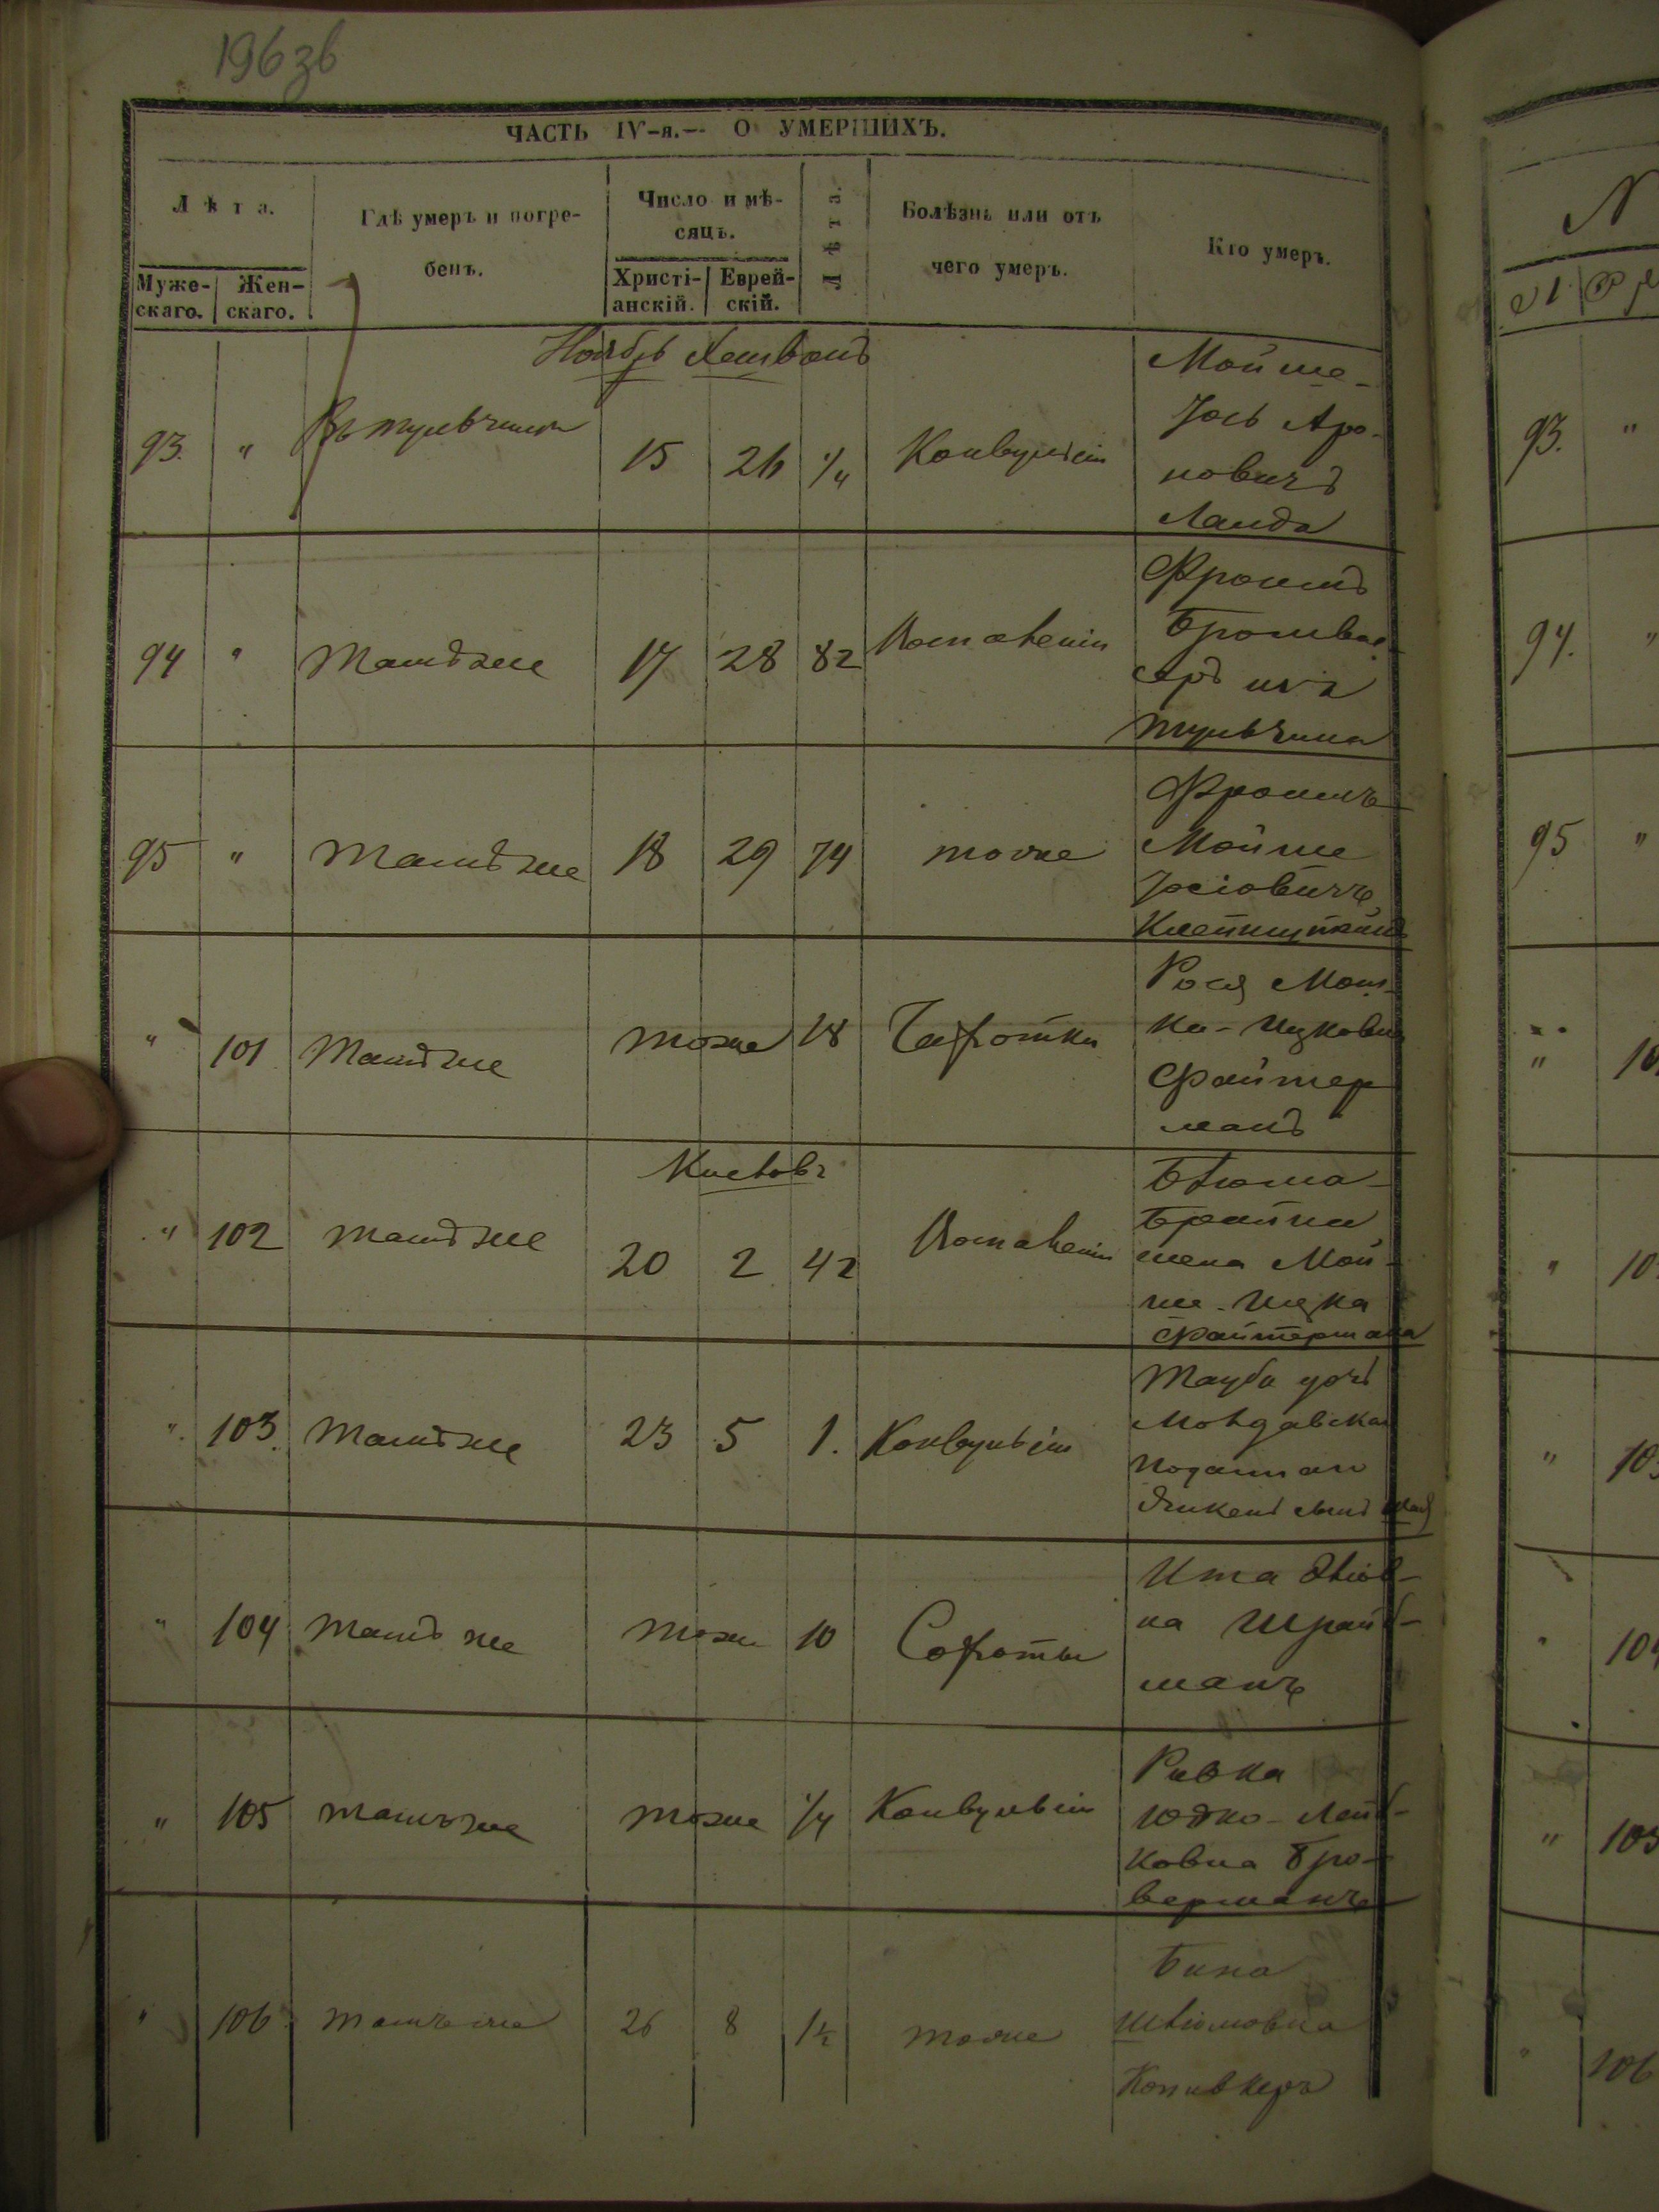 196зв
ЧАСТЬ IV-я.— О УМЕРШИХЪ.
Лѣта.
Мужескаго. Женскаго.
Гдѣ умеръ и погре-
бенъ.
Число и мѣ-
сяцъ.
Христі-
анскій.
Еврей-
скій.
Лѣта.
Болѣзнь или отъ
чего умеръ.
Кто умеръ.
Ноябрь Хешванъ
93. " Въ Тульчинѣ 15 26 1/4 Конвульсіи
Мойше-
Іось Аро-
новичъ
Ланда
94 " Тамъ же 17 28 82
Фроимъ
Тульчина
95 " Тамъ же 18 29 74 тоже
Фроимъ
Мойше
Іосіовичъ
" 101 Тамъ же тоже 18 Чахотки
Рося Мош-
ко-Ицковна
Файтер
манъ
Кислевъ
" 102 Тамъ же 20 2 42
Блюма-
Брайна
жена Мой-
ше-Ицка
Файтермана
" 103. Тамъ же 23 5 1. Конвульсіи
Тауба дочь
Молдавскаго
" 104 Тамъ же тоже 10 Сохоты
Ита
на Шрайб-
манъ
" 105 тамъ же тоже 1/4 Конвульсіи
Ривка
Юдко-Лейб-
ковна Бро-
верманъ
" 106 тамъ же 26 8 1½ тоже
Бина
Шліомовна
93. "
94. "
95 "
"
"
" 103
" 104
" 105
" 106